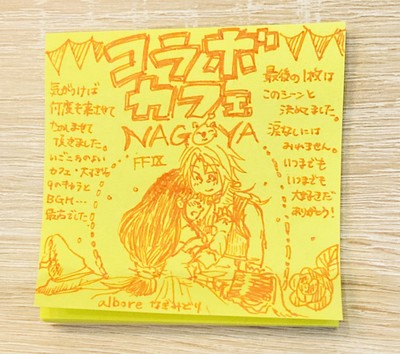 コラボ
カフェ
NAGOYA
FFIX
最後の1枚は
このシーンと
決めてました。
涙なしには
みれません。
いつまでも
いつまでも
大好きだ
ありがとう!
気がつけば
何度も来させて
頂きました。
いごこちのよい
カフェ・大すきな
9のキャラと
BGM…
最高でした
albore なぎみどり